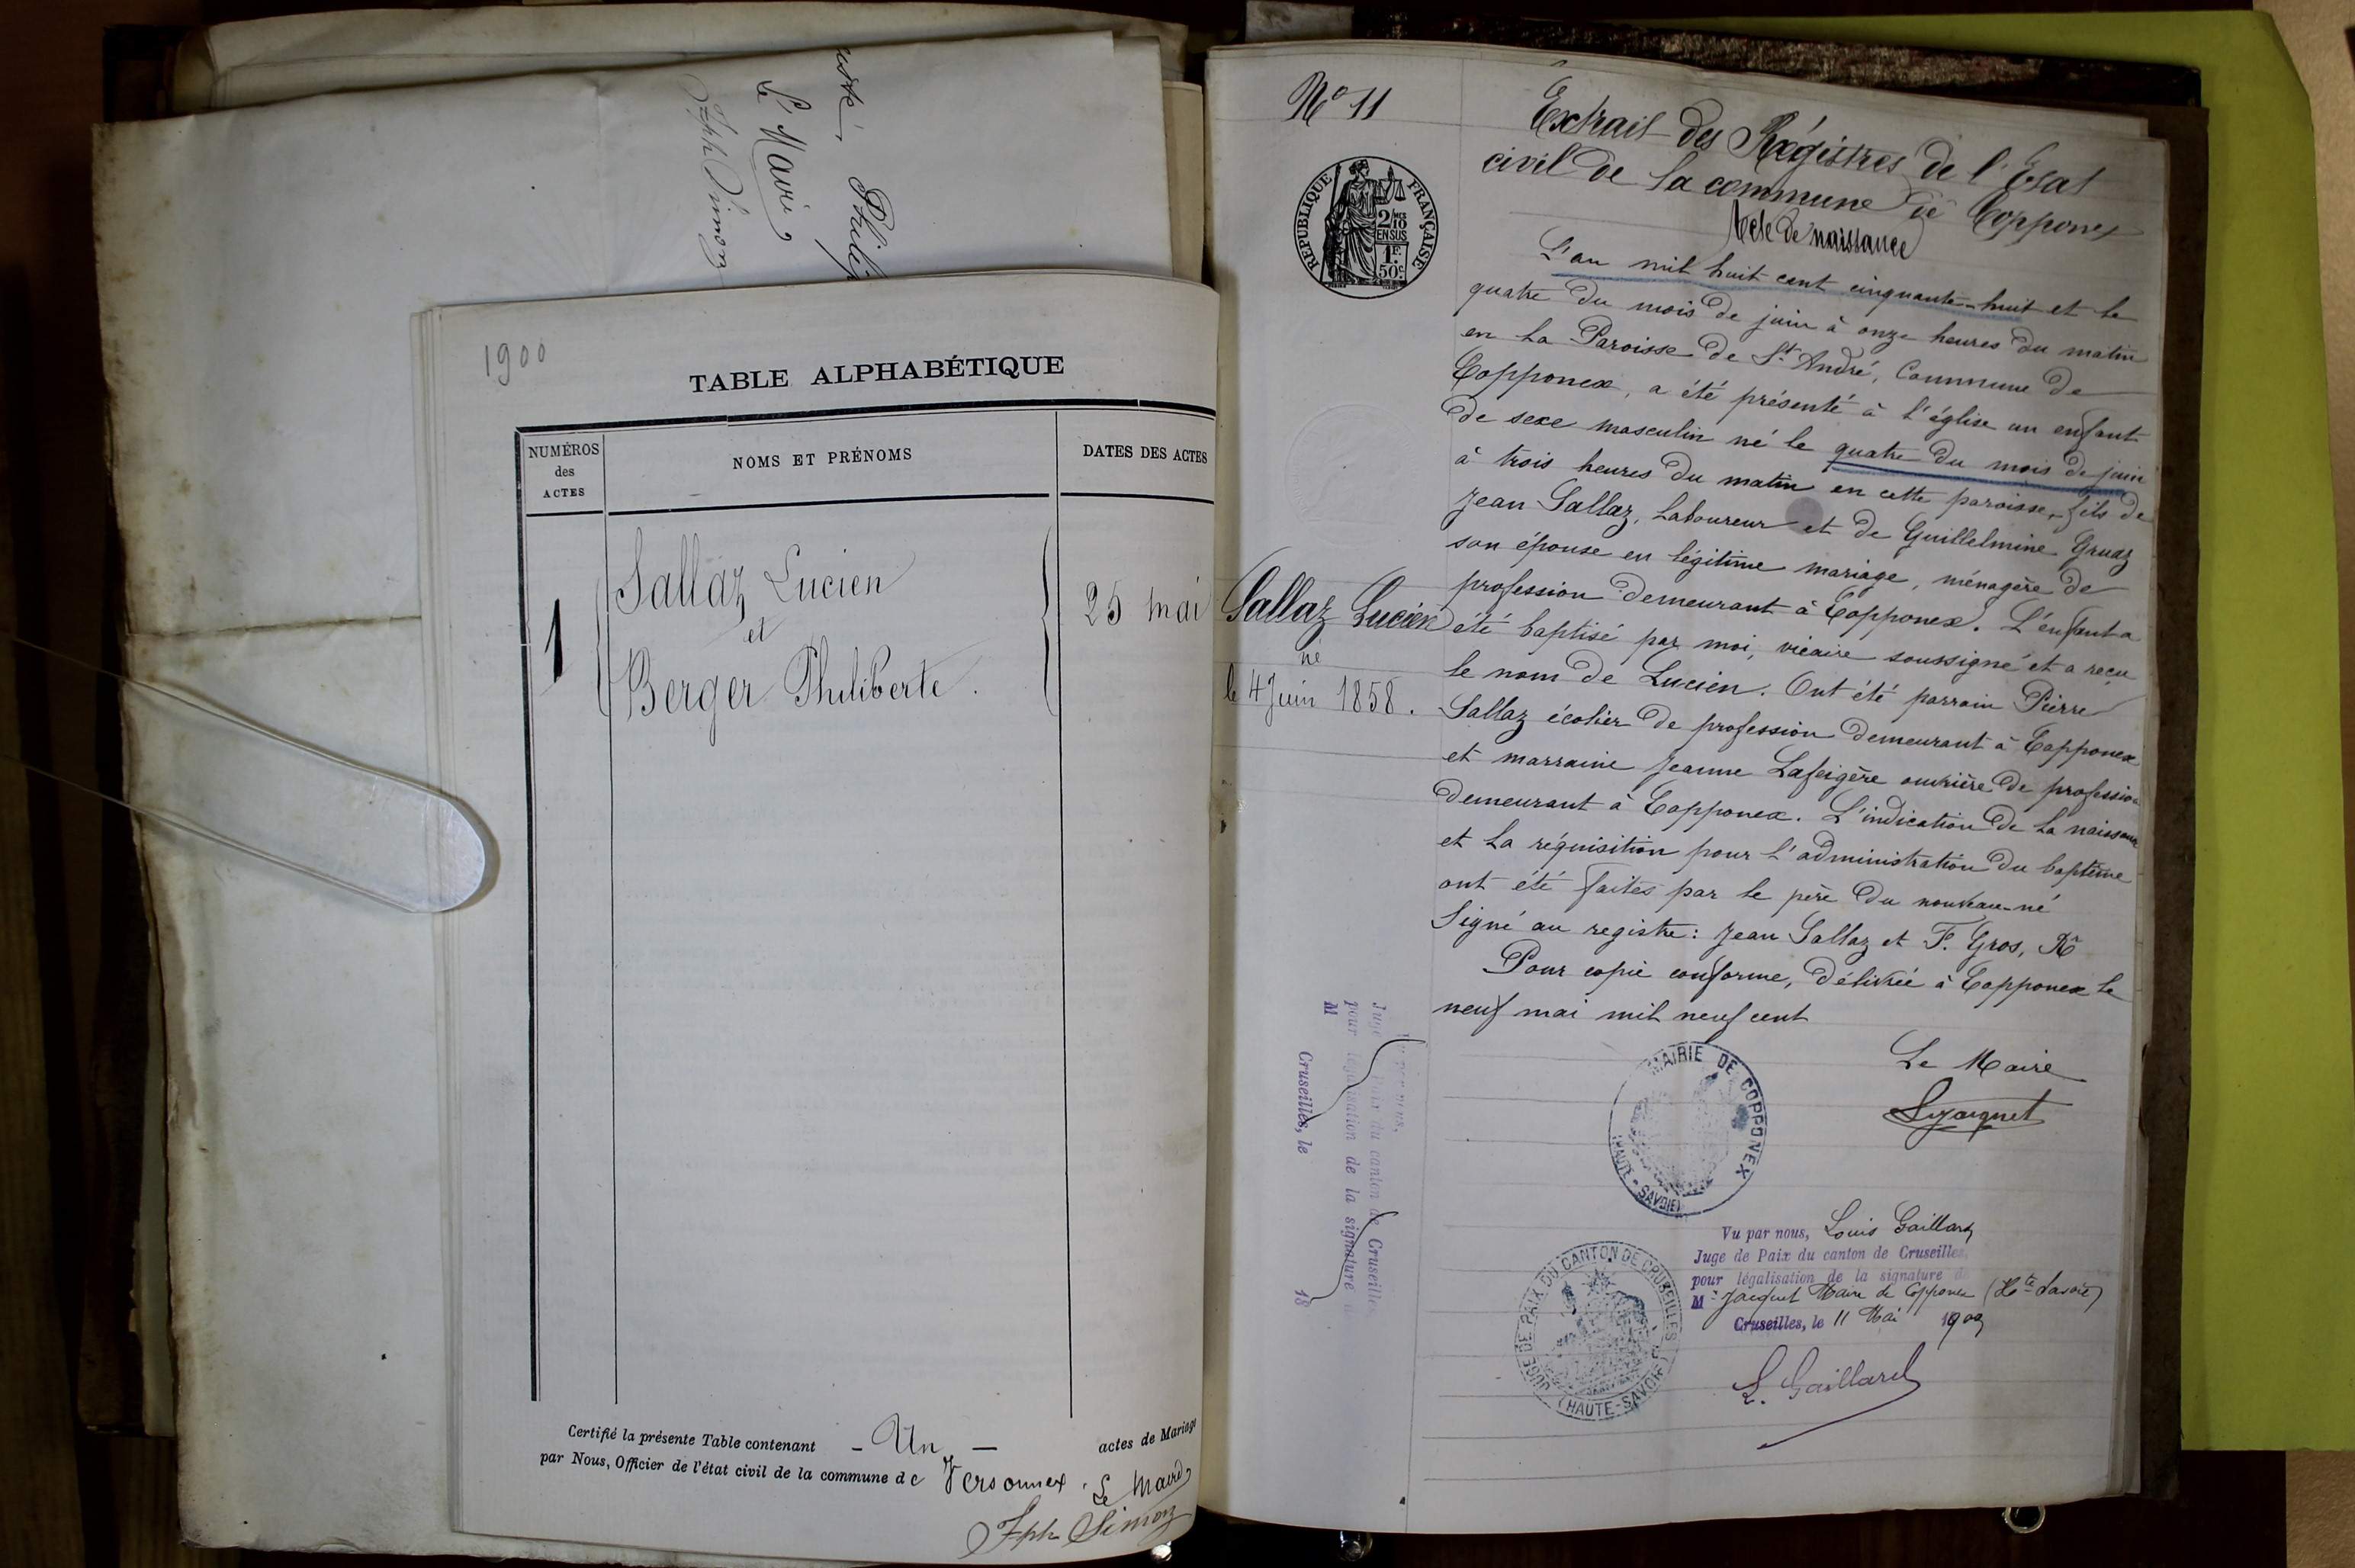 Le Maire
Jph Simon
1900
TABLE ALPHABÉTIQUE
NUMÉROS
des
ACTES
NOMS ET PRÉNOMS
DATES DES ACTES
1
Sallaz Lucien
et
Berger Philiberte.
25 mai
Certifié la présente Table contenant - Un - actes de Mariage
par Nous, Officier de l'état civil de la commune de Versonnex. Le Maire
Jph Simon
No 11
RÉPUBLIQUE FRANÇAISE
2/10
EN SUS
1F.
50c.
Extrait des Régistres de l'Etat
civil de la commune de Copponex
Acte de naissance
L'an mil huit cent cinquante-huit et le
quatre du mois de juin à onze heures du matin
en la Paroisse de St André, Commune de
Copponex, a été présenté à l'église un enfant
de sexe masculin né le quatre du mois de juin
à trois heures du matin en cette paroisse, fils de
Jean Sallaz, laboureur et de Guillelmine Gruaz
son épouse en légitime mariage, ménagère de
profession demeurant à Copponex. L'enfant a
été baptisé par moi, vicaire soussigné et a reçu
le nom de Lucien. Ont été parrain Pierre
Sallaz écolier de profession demeurant à Copponex
et marraine Jeanne Lafeigère ouvrière de profession
demeurant à Copponex. L'indication de la naissance
et la réquisition pour l'administration du baptême
ont été faites par le père du nouveau-né
Signé au registre: Jean Sallaz et F. Gros, Rr
Pour copie conforme, délivrée à Copponex le
neuf mai mil neuf cent
Sallaz Lucien
né
le 4 Juin 1858.
Le Maire
MAIRIE DE COPPONEX
(HAUTE-SAVOIE)
Vu par nous, Louis Gaillard
Juge de Paix du canton de Cruseilles,
pour légalisation de la signature de
M r Jacquet Maire de Copponex (Hte Savoie)
Cruseilles, le 11 Mai 1900
L. Gaillard
JUGE DE PAIX DU CANTON DE CRUSEILLES
(HAUTE-SAVOIE)
Vu par nous,
Juge de Paix du canton de Cruseilles
pour légalisation de la signature de
M
Cruseilles, le 18